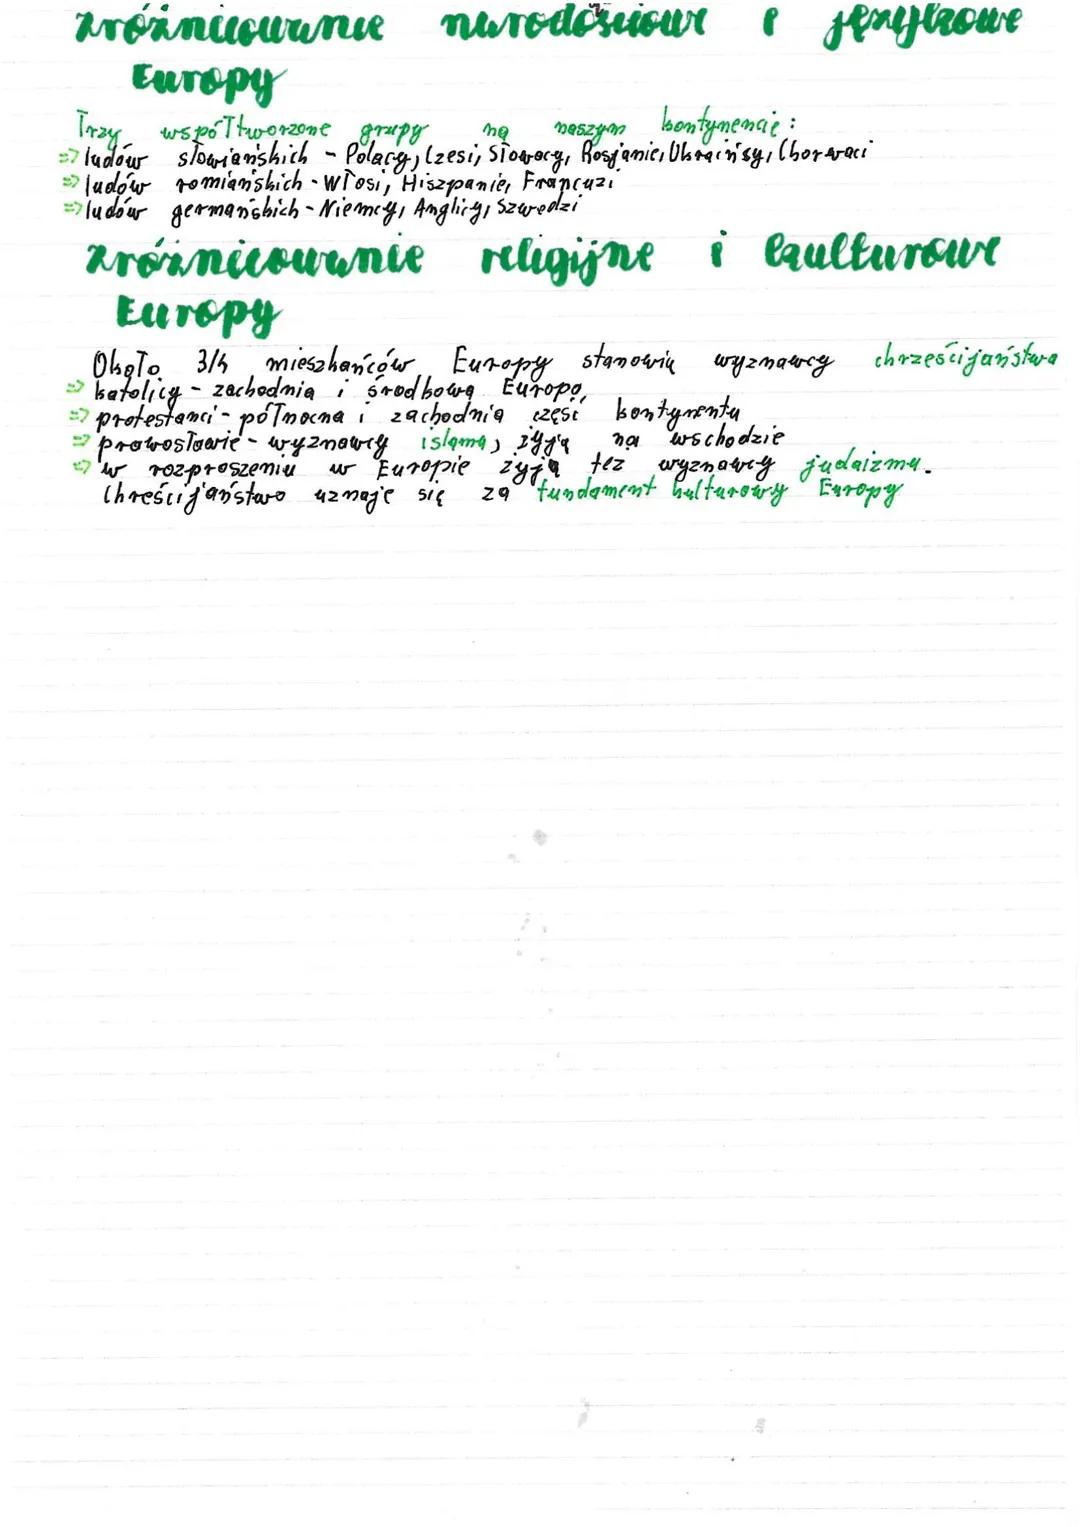 zróżnicowanie narodościowe i językowe
Europy
Trzy współtworzone grupy na naszym kontynencie:
=> ludów słowiańskich - Polacy, Czesi, Słowacy, Rosjanie, Ukraińsy, Chorwaci
=> ludów romiańskich - Włosi, Hiszpanie, Francuzi
=> ludów germańskich - Niemcy, Anglicy, Szwedzi
zróżnicowanie religijne i kulturowe
Europy
Około 3/4 mieszkańców Europy stanowią wyznawcy chrześcijaństwa
=> katolicy - zachodnia i środkowa Europa,
=> protestanci - północna i zachodnia część kontynentu
=> prawosławie - wyznawcy islamu, żyją na wschodzie
=> w rozproszeniu w Europie żyją też wyznawcy judaizmu.
Chreścijaństwo uznaje się za fundament kulturowy Europy